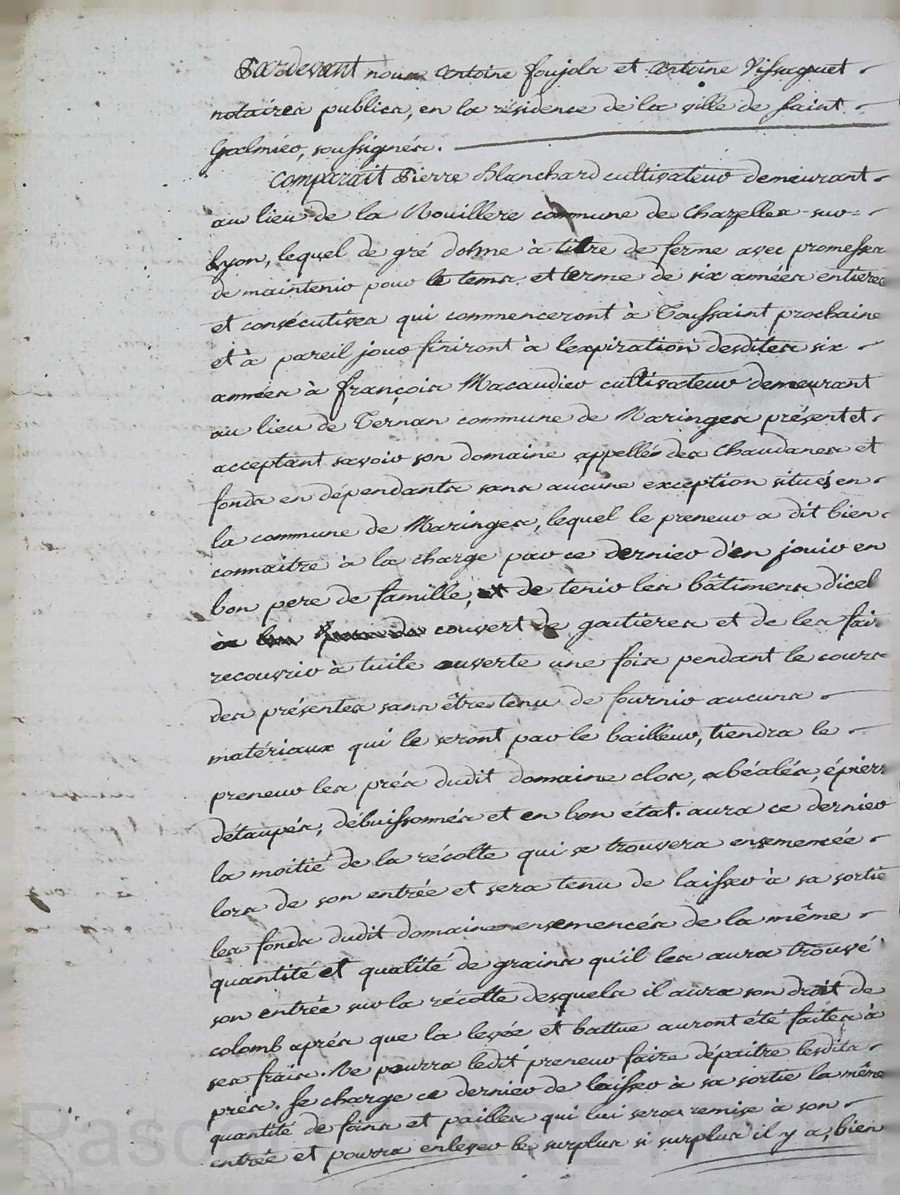 Pardevant nous Antoine foujols et Antoine Vissaguet
notaires publics, en la résidence de la ville de Saint
Galmier, soussignés.
Comparait Pierre Blanchard cultivateur demeurant
au lieu de la Rouillere commune de Chazelles-sur-
Lyon, lequel de gré donne à titre de ferme avec promesses
de maintenir pour le tems et terme de six années entieres
et consécutives qui commenceront à Toussaint prochaine
et à pareil jour finiront à lexpiration desdites six
années à françois Macaudier cultivateur demeurant
au lieu de Ternan commune de Maringes présent et
acceptant savoir son domaine appellés des Chaudanes et
fonds en dependants sans aucune exception situés en
la commune de Maringes, lequel le preneur a dit bien
connaitre à la charge par ce dernier d'en jouir en
bon pere de famille, de tenir les bâtimens d'icel
couvert de goutieres et de les fair
recouvrir à tuile ouverte une fois pendant le cours
des présentes sans être tenu de fournir aucuns
matériaux qui le seront par le bailleur, tiendra le
preneur les prés dudit domaine clos, abéalés, épierr
détaupés, débuissonnés et en bon état. aura ce dernier
la moitié de la récolte qui se trouvera ensemencée
lors de son entrée et sera tenu de laisser à sa sortie
les fonds dudit domaine ensemencés de la même
quantité et qualité de grains qu'il les aura trouvé
son entrée sur la récolte desquels il aura son droit de
colomb aprés que la levée et battue auront été faites à
ses frais. Ne pourra ledit preneur faire dépaitre lesdits
prés. Se charge ce dernier de laisser à sa sortie la même
quantité de foins et pailles qui lui sera remise à son
entrée et pourra enlever le surplus si surplus il y a, bien